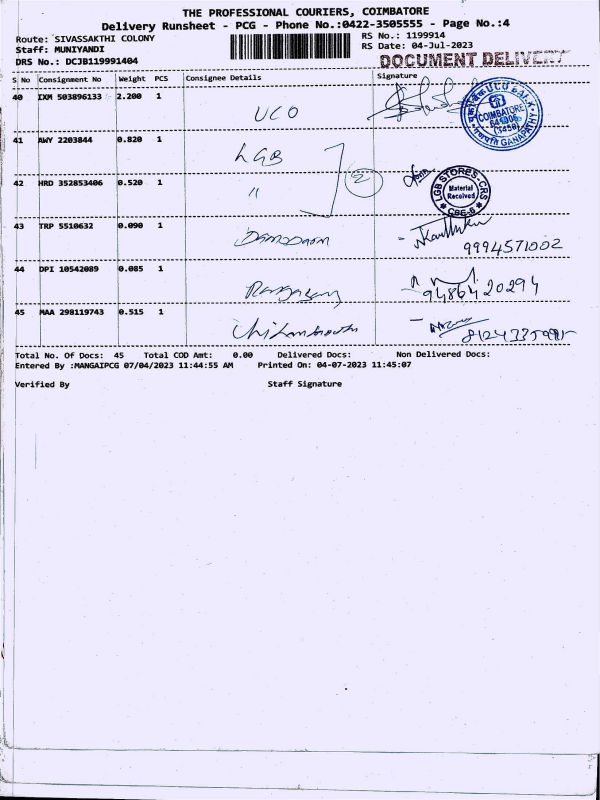 THE PROFESSIONAL COURIERS, COIMBATORE
Delivery Runsheet - PCG - Phone No.:0422-3505555 - Page No.:4
Route: SIVASSAKTHI COLONY
RS No.: 1199914
Staff: MUNIYANDI
RS Date: 04-Jul-2023
DRS No.: DCJB119991404
DOCUMENT DELIVERY
S No Consignment No Weight PCS Consignee Details Signature
40 IXM 503896133 2.200 1 UCO
UCO BANK
COIMBATORE
GANAPATHY
41 AWY 2203844 0.820 1 LGB
2
42 HRD 352853406 0.520 1 "
LGB STORES-CRS
Material
Received
CBE-6
43 TRP 5510632 0.090 1 Damodaran
9994571002
44 DPI 10542089 0.085 1 Rangasamy
9486420294
45 MAA 298119743 0.515 1
Total No. Of Docs: 45 Total COD Amt: 0.00 Delivered Docs: Non Delivered Docs:
Entered By :MANGAIPCG 07/04/2023 11:44:55 AM Printed On: 04-07-2023 11:45:07
Verified By Staff Signature